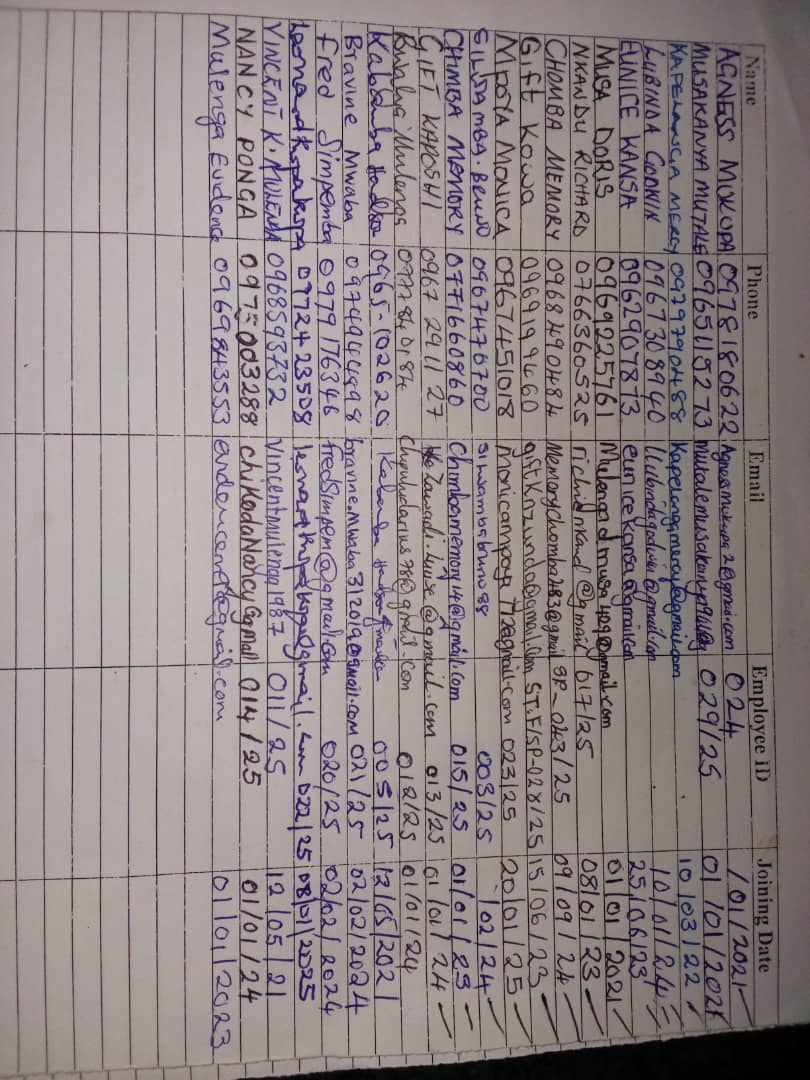 Name Phone Email Employee iD Joining Date
AGNESS MUKUPA 0978180622 024 /01/2021
MUSAKANYA MUTALE 0965115273 029/25 01/01/202
KAPELANGA MERCY 0979790488 Kapelengamercy@gmail.com 10/03/22
LUBINDA GODWIN 0967308940 10/01/24
EUNICE KANSA 0962907873 eunicekansa@gmail.com 25/06/23
MUSA DORIS 0969225761 Mulengadmusa409@gmail.com 01/01/2021
NKANDU RICHARD 0766360525 richidnkand@gmail 617/25 08/01/23
CHOMBA MEMORY 0968490484 Memorychomba283@gmail SP-043/25 09/09/24
Gift Kowa 0969199460 ST.F/SP-028/25 15/06/23
MPOYA MONICA 0967451018 Monicampoya712@gmail.com 023/25 20/01/25
SILWAMBA BRUNO 0967476700 silwambabruno88 003/25 /02/24
CHIMBA MEMORY 0771660860 Chimbamemory14@gmail.com 015/25 01/01/23
GIFT KAPOSHI 0967 2911 27 @gmail.com 013/25 01/01/24
Mulenga 0977840184 012/25 01/01/24
Kabamba 0965-102620 005/25 12/05/2021
Bravine Mwaba 0974944498 bravine.Mwaba312019@gmail.com 021/25 02/02/2024
Fred Simpemba 0979176346 fredSimpem@gmail.com 020/25 02/02/2024
Leonard 0972423508 022/25 08/01/2025
VINCENT K. MULENGA 0968593732 Vincentmulenga1987 011/25 12/05/21
NANCY PONGA 0975003288 chikodaNancy@gmail 014/25 01/01/24
Mulenga Evidence 0969843553 01/01/2023